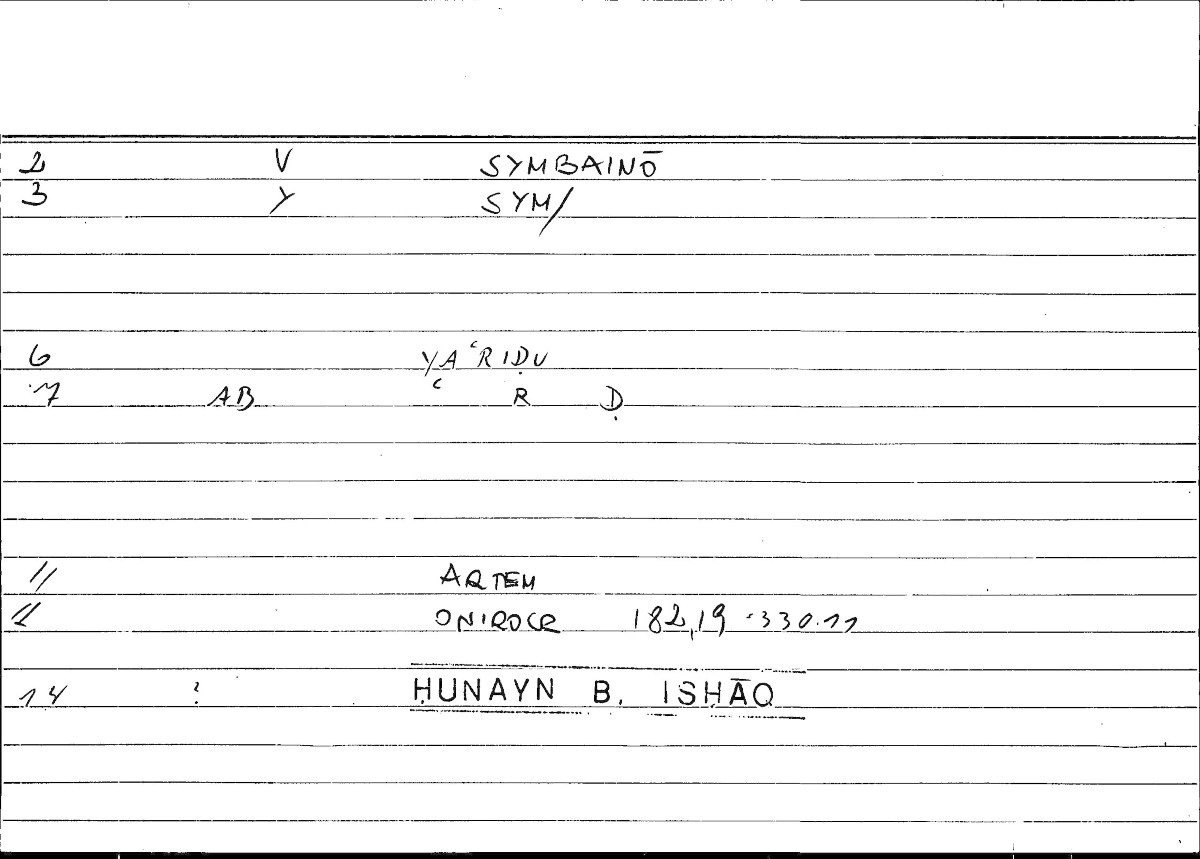 2 V SYMBAINŌ
3 Y SYM/
6 YAʿRIḌU
7 AB ʿ R Ḍ
11 ARTEM
12 ONIROCR 182,19 - 330.11
14 ? ḤUNAYN B. ISḤĀQ